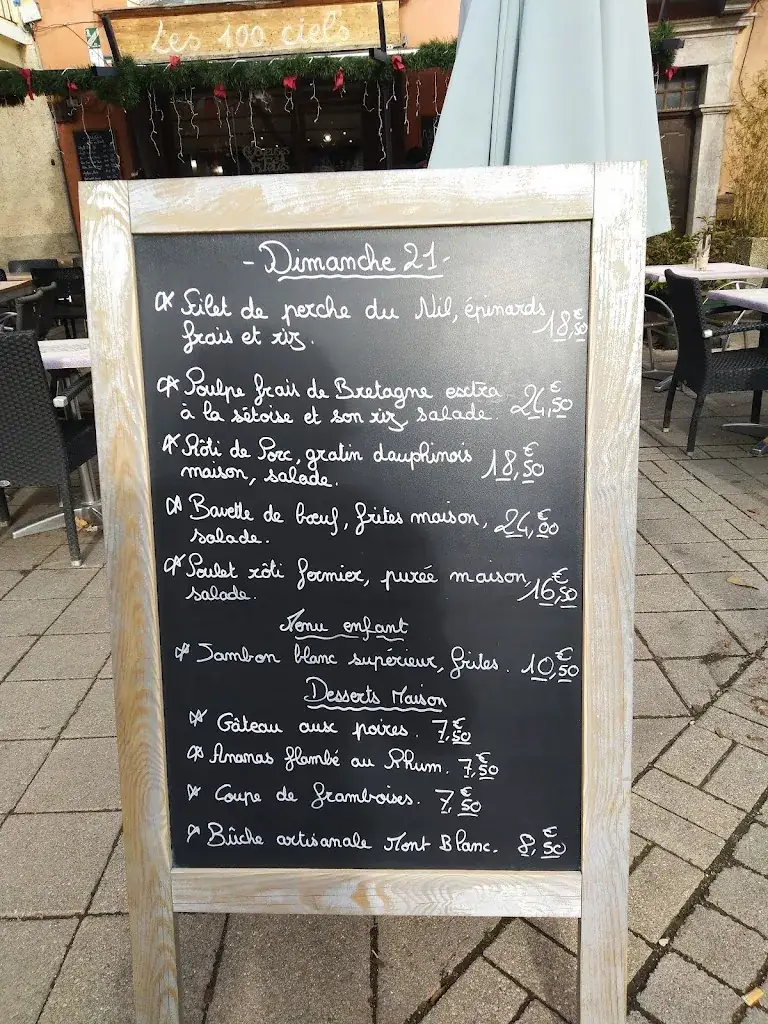 Les 100 ciels
- Dimanche 21 -
Filet de perche du Nil, épinards
frais et riz. 18,50€
Poulpe frais de Bretagne extra
à la sétoise et son riz, salade. 24,50€
Rôti de Porc, gratin dauphinois
maison, salade. 18,50€
Bavette de bœuf, frites maison,
salade. 24,00€
Poulet rôti fermier, purée maison,
salade. 16,50€
Menu enfant
Jambon blanc supérieur, frites. 10,50€
Desserts Maison
Gâteau aux poires. 7,50€
Ananas flambé au Rhum. 7,50€
Coupe de framboises. 7,50€
Bûche artisanale Mont Blanc. 8,50€